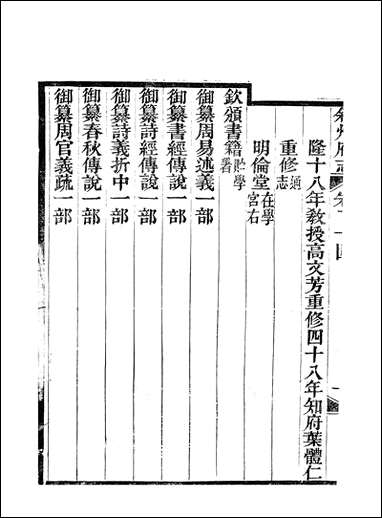 州府志
隆十八年教授高文芳重修四十八年知府葉體仁
重修通志
明倫堂在學宮右
欽頒書籍貯學署
御纂周易述義一部
御纂書經傳說一部
御纂詩經傳說一部
御纂詩義折中一部
御纂春秋傳說一部
御纂周官義疏一部